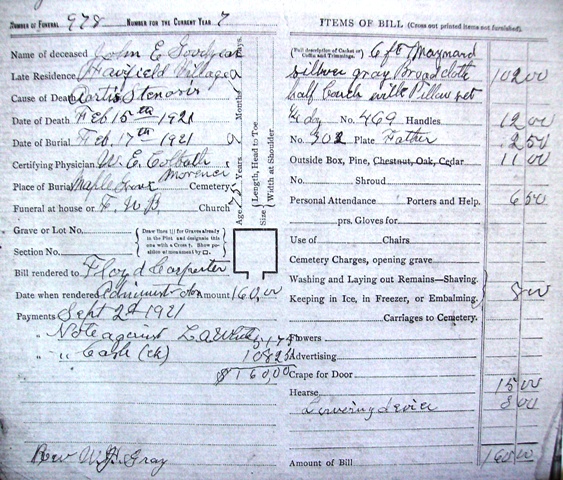 Number of Funeral 978 Number for the Current Year 7
Name of deceased John E Goodyear
Late Residence Fairfield Village
Cause of Death Aortic Stenosis
Date of Death Feb 15th 1921
Date of Burial Feb. 17th 1921
Certifying Physician W. E. Colbath
Morenci
Place of Burial Maple Grove Cemetery
Funeral at house or F. W. B Church
Grave or Lot No.
Section No.
Draw lines for Graves already in the Plot and designate this one with a Cross. Show position of monument by □.
Bill rendered to Floyd Carpenter
Date when rendered Administrator Amount 160.00
Payments Sept 2d 1921
" Note against L A White 51 75
" " Cash (ck) 108 25
$160.00
Rev W. H. Gray
Age Years Months Days.
Size Length, Head to Toe
Width at Shoulder
ITEMS OF BILL (Cross out printed items not furnished)
(Full description of Casket or Coffin and Trimmings.) 6 ft Maynard
silver gray Broadcloth 102 00
half Couch Pillow set
No. 469 Handles 12 00
No. 302 Plate Father 2 50
Outside Box, Pine, Chestnut, Oak, Cedar 11 00
No. Shroud
Personal Attendance Porters and Help. 6 50
prs. Gloves for
Use of Chairs
Cemetery Charges, opening grave
Washing and Laying out Remains—Shaving.
Keeping in Ice, in Freezer, or Embalming, 8 00
Carriages to Cemetery.
Flowers
Advertising
Crape for Door
Hearse 15 00
Lowering device 3 00
Amount of Bill 160 00